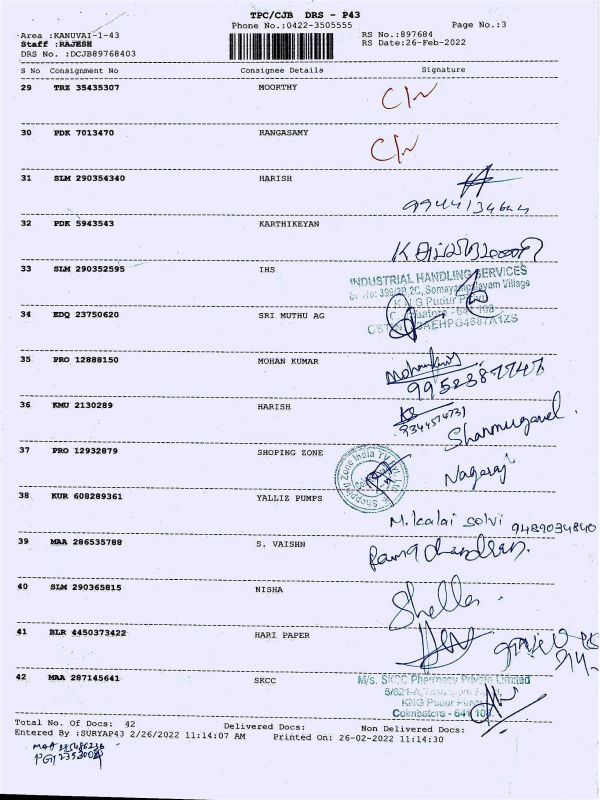 TPC/CJB DRS - P43
Phone No.:0422-3505555 Page No.:3
Area :KANUVAI-1-43 RS No.:897684
Staff :RAJESH RS Date:26-Feb-2022
DRS No. :DCJB89768403
S No Consignment No Consignee Details Signature
29 TRZ 35435307 MOORTHY
30 PDK 7013470 RANGASAMY
31 SLM 290354340 HARISH
32 PDK 5943543 KARTHIKEYAN
33 SLM 290352595 IHS
INDUSTRIAL HANDLING SERVICES
34 EDQ 23750620 SRI MUTHU AG
35 PRO 12888150 MOHAN KUMAR
9952387747
36 KMU 2130289 HARISH
Shanmugavel
37 PRO 12932879 SHOPING ZONE
Nagaraj
38 KUR 608289361 YALLIZ PUMPS
M. Kalai selvi 9489034840
39 MAA 286535788 S. VAISHN
Ramachandran.
40 SLM 290365815 NISHA
41 BLR 4450373422 HARI PAPER
42 MAA 287145641 SKCC
M/s. SKCC Pharmacy Private Limited
KNG Pudur
Coimbatore - 641 108
Total No. Of Docs: 42 Delivered Docs: Non Delivered Docs:
Entered By :SURYAP43 2/26/2022 11:14:07 AM Printed On: 26-02-2022 11:14:30